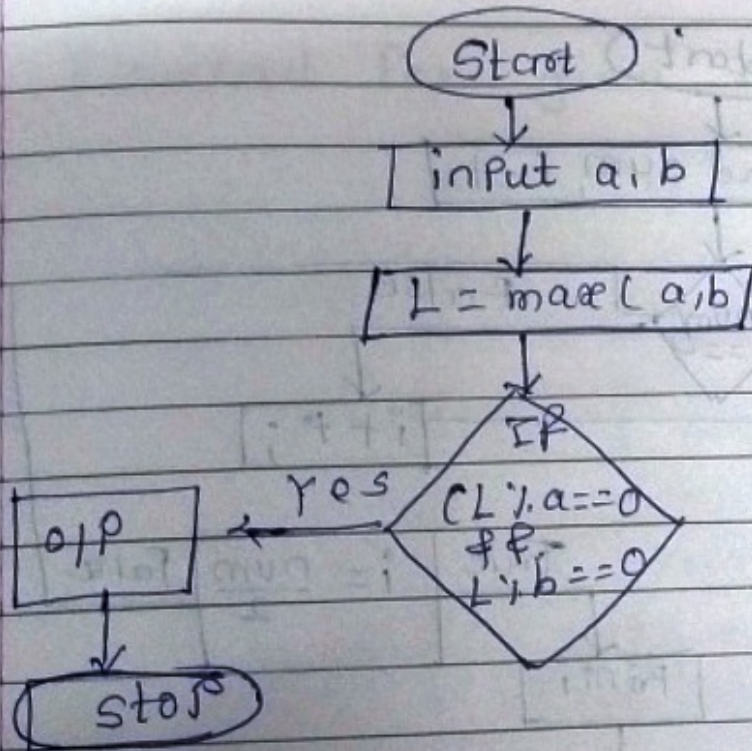 Start
input a, b
L = max( a,b
If
(L % a==0
&&
L % b==0
Yes
o/p
Stop
i++;